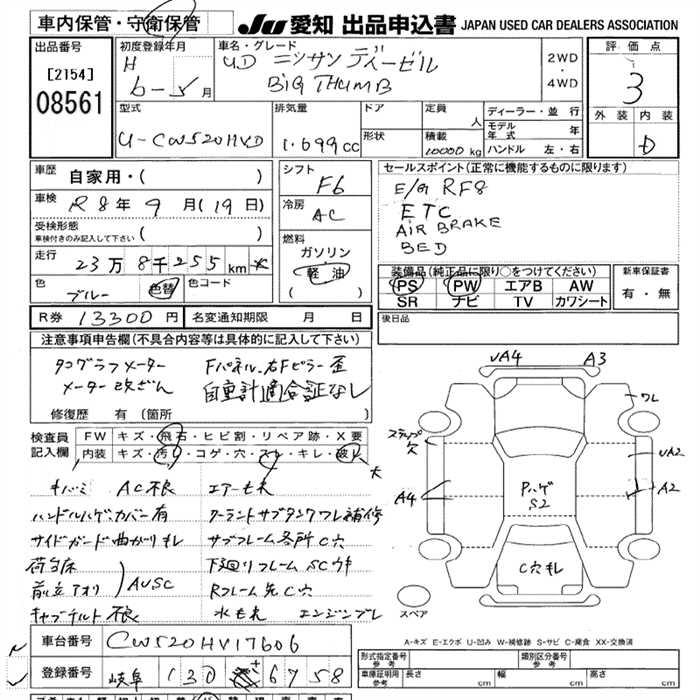 車内保管・守衛保管
JU 愛知 出品申込書 JAPAN USED CAR DEALERS ASSOCIATION
出品番号
[2154]
08561
初度登録年月
H
6-5月
車名・グレード
UD ニッサンディーゼル
BIG THUMB
2WD
・
4WD
評価点
3
外装 内装
D
型式
U-CW520HVD
排気量
1.699cc
ドア
形状
定員
人
積載
10000kg
ディーラー・並行
モデル年式 年
ハンドル 左・右
車歴
自家用・( )
車検
R8年9月(19日)
受検形態
車検付きのみ記入して下さい ( )
走行
23万8千255km *
色
ブルー 色替
色コード
シフト
F6
冷房
AC
燃料
ガソリン
軽油
( )
セールスポイント(正常に機能するものに限ります)
E/G RF8
ETC
AIR BRAKE
BED
装備品(純正品に限り○をつけてください)
PS PW エアB AW
SR ナビ TV カワシート
新車保証書
有・無
R券 13300円
名変通知期限 月 日
後日品
注意事項申告欄(不具合内容等は具体的に記入して下さい)
タコグラフメーター
メーター改ざん
Fパネル、右Fピラー歪
自重計適合証なし
修復歴 有(箇所 )
検査員
記入欄
FW キズ・飛石・ヒビ割・リペア跡・X要
内装 キズ・汚れ・コゲ・穴・スレ・キレ・破レ
*
キバミ AC不良 エアーもれ
ハンドルハゲ、カバー有 クーラントサブタンクワレ補修
サイドガード曲がりキレ サブフレーム各所C穴
荷台床 下廻りフレームSCウキ
前立アオリ AUSC Rフレーム先C穴
キャブチルト不良 水もれ エンジンブレ
UA4 A3
ワレ
ステップ穴
UA2
A4
A2
Pハゲ
S2
C穴キレ
スペア
A-キズ E-エクボ U-凹み W-補修跡 S-サビ C-腐食 XX-交換済
車台番号 CW520HV17606
登録番号 岐阜 130 6758
形式指定番号
参考
類別区分番号
参考
車庫証明用
参考
長さ cm 幅 cm 高さ cm